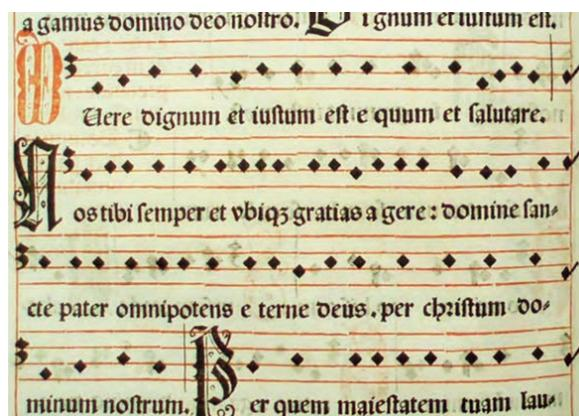 a gamus domino deo nostro. Dignum et iustum est.
Uere dignum et iustum est e quum et salutare.
Nos tibi semper et vbiqꝫ gratias a gere : domine san⸗
cte pater omnipotens e terne deus. per christum do⸗
minum nostrum. Per quem maiestatem tuam lau⸗